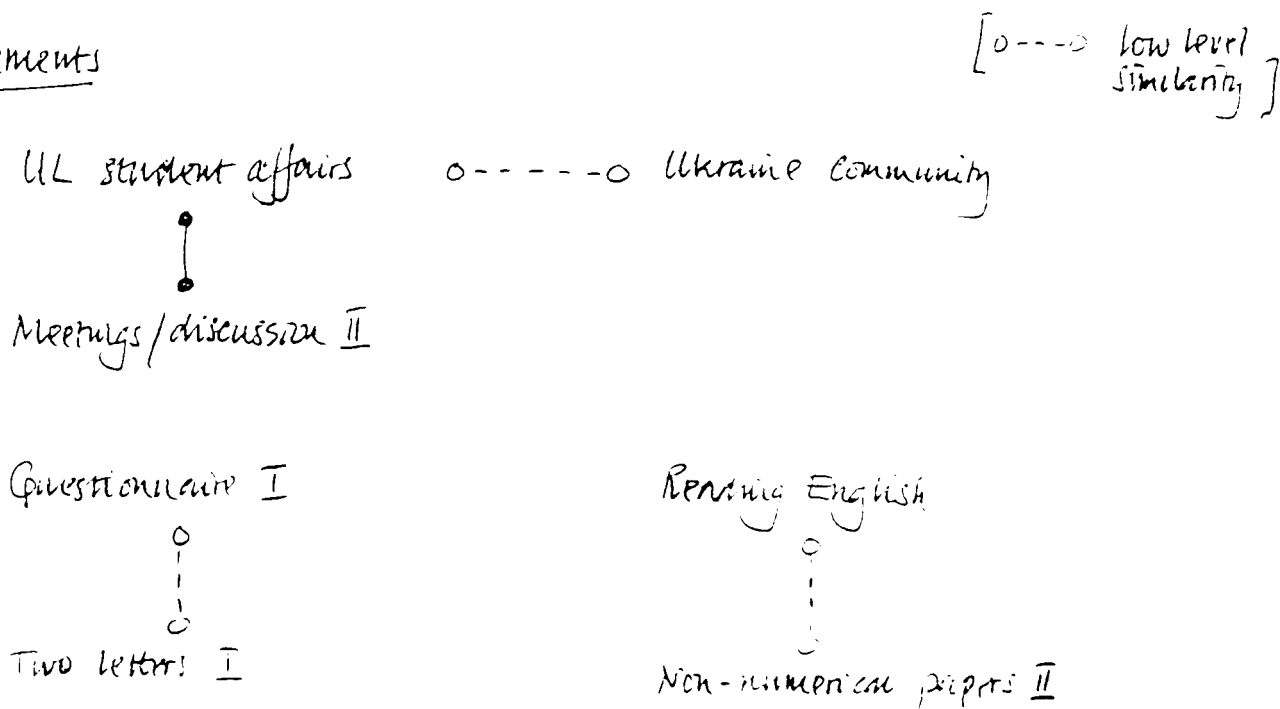 ements
[o---o low level
similarity]
UL student affairs o-----o Ukraine community
Meetings/discussion II
Questionnaire I
Reading English
Two letters I
Non-numerical papers II